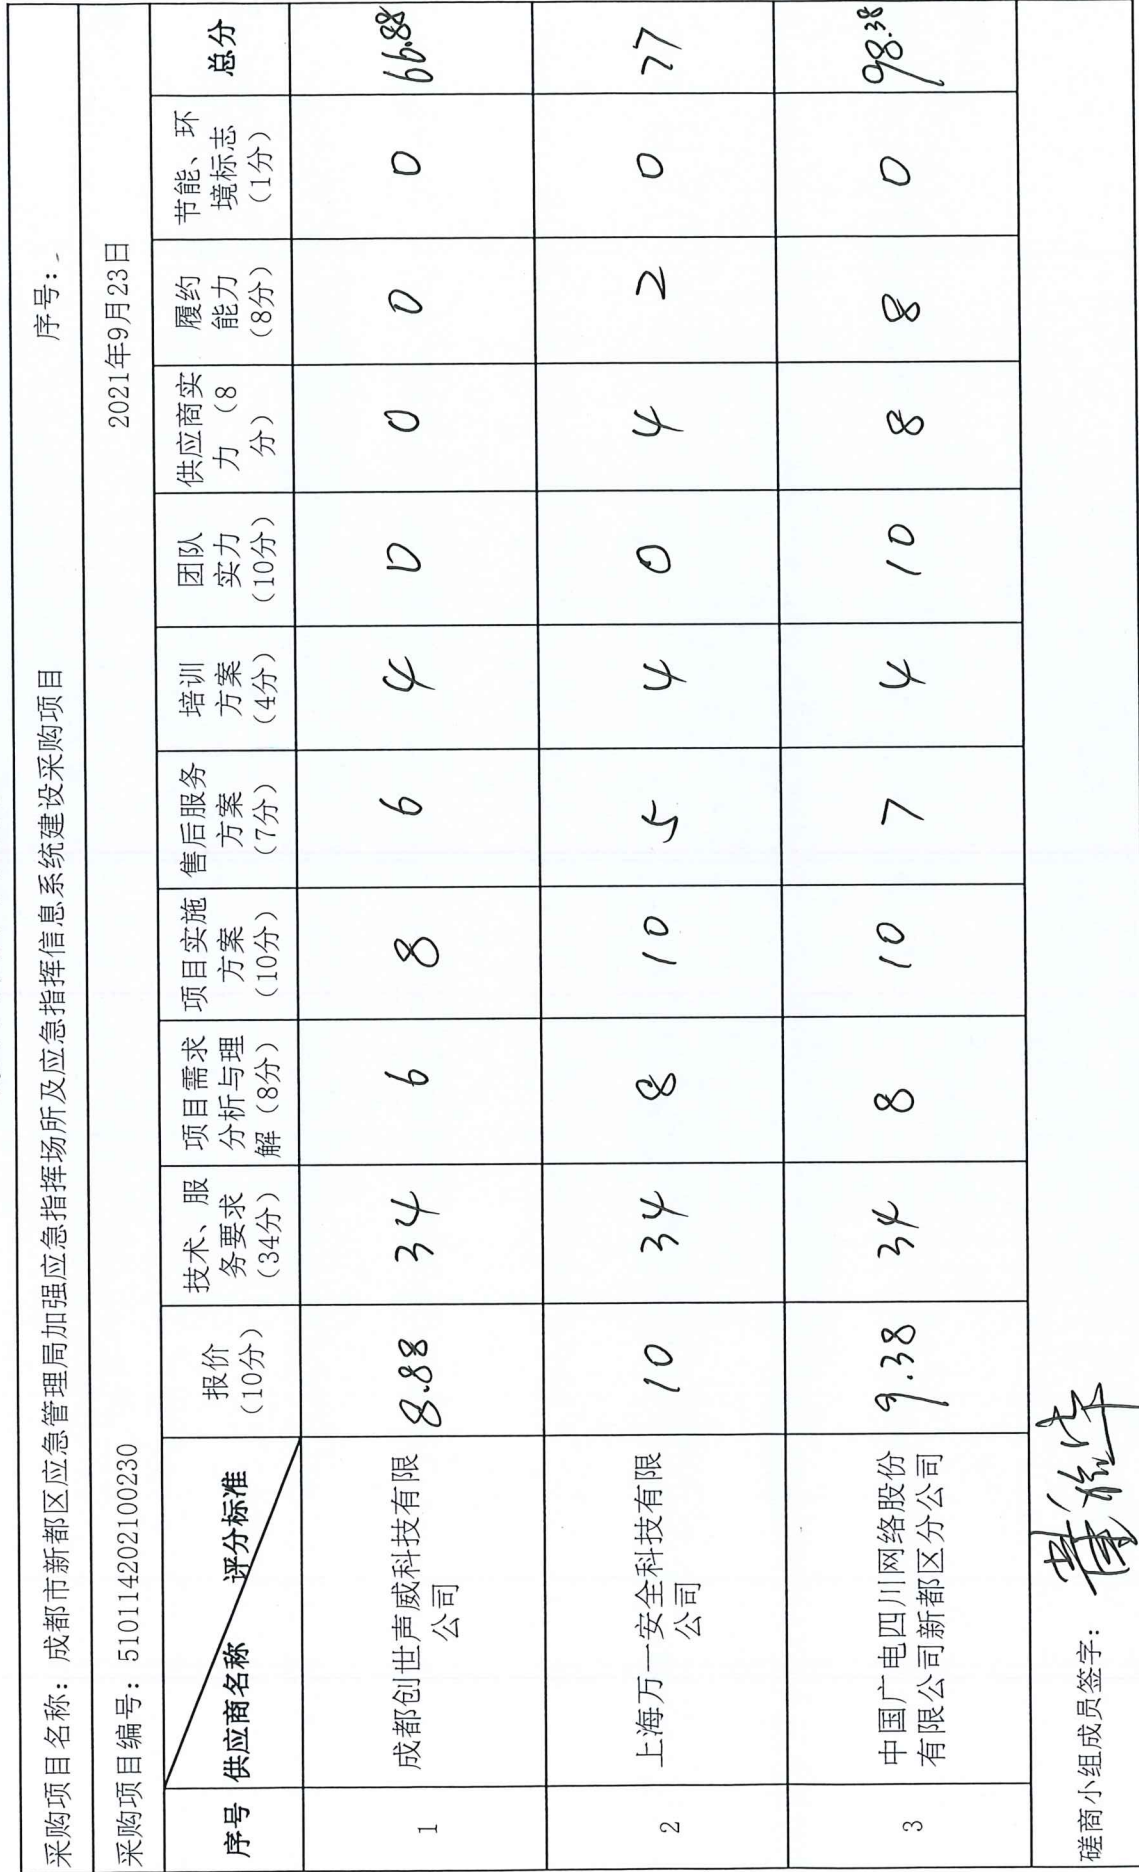 采购项目名称：成都市新都区应急管理局加强应急指挥场所及应急指挥信息系统建设采购项目 序号：
采购项目编号：510114202100230 2021年9月23日
序号 供应商名称 评分标准 报价（10分） 技术、服务要求（34分） 项目需求分析与理解（8分） 项目实施方案（10分） 售后服务方案（7分） 培训方案（4分） 团队实力（10分） 供应商实力（8分） 履约能力（8分） 节能、环境标志（1分） 总分
1 成都创世声威科技有限公司 8.88 34 6 8 6 4 0 0 0 0 66.88
2 上海万一安全科技有限公司 10 34 8 10 5 4 0 4 2 0 77
3 中国广电四川网络股份有限公司新都区分公司 9.38 34 8 10 7 4 10 8 8 0 98.38
磋商小组成员签字：